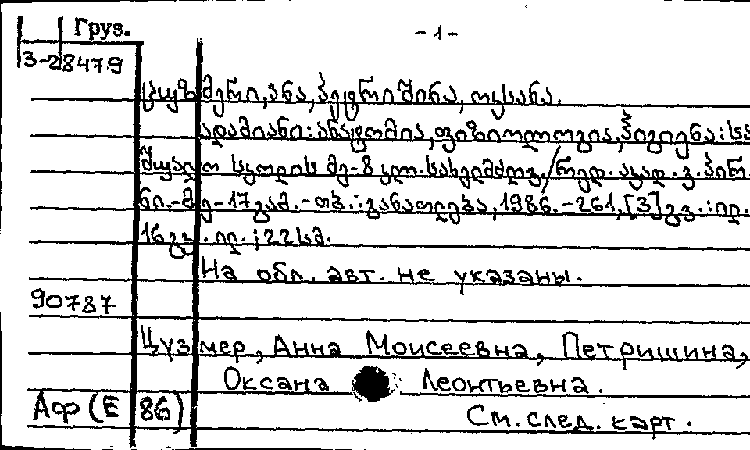 Груз.
- 1 -
3-28479
ცუზმერი, ანა, პეტრიშინა, ოქსანა.
ადამიანი: ანატომია, ფიზიოლოგია, ჰიგიენა: სა-
შუალო სკოლის მე-8 კლ. სახელმძღვ. / რედ. აკად.
ნი.- მე-17 გამ.- თბ.: განათლება, 1986.-261, [3] გვ.: ილ.
16 გვ. ილ.; 22 სმ.
На обл. авт. не указаны.
90787
Цузмер, Анна Моисеевна, Петришина,
Оксана Леонтьевна.
Аф (Е 86)
См. след. карт.